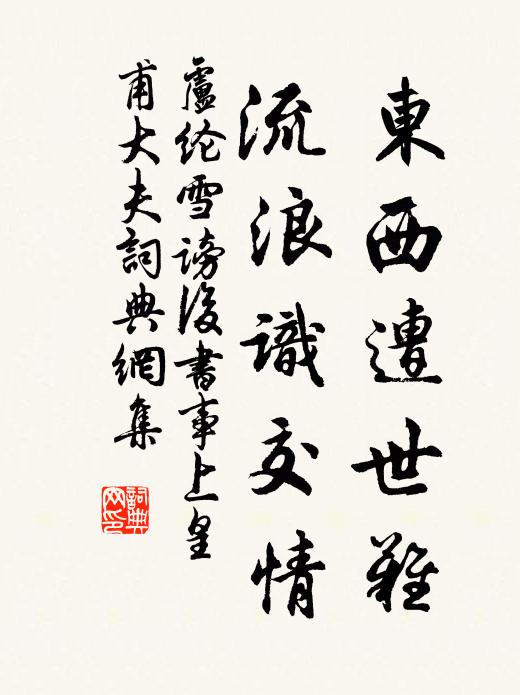 東西遭世難
流浪識交情
盧纶雪謗後書事上皇
甫大夫詞典網集
詞典网印